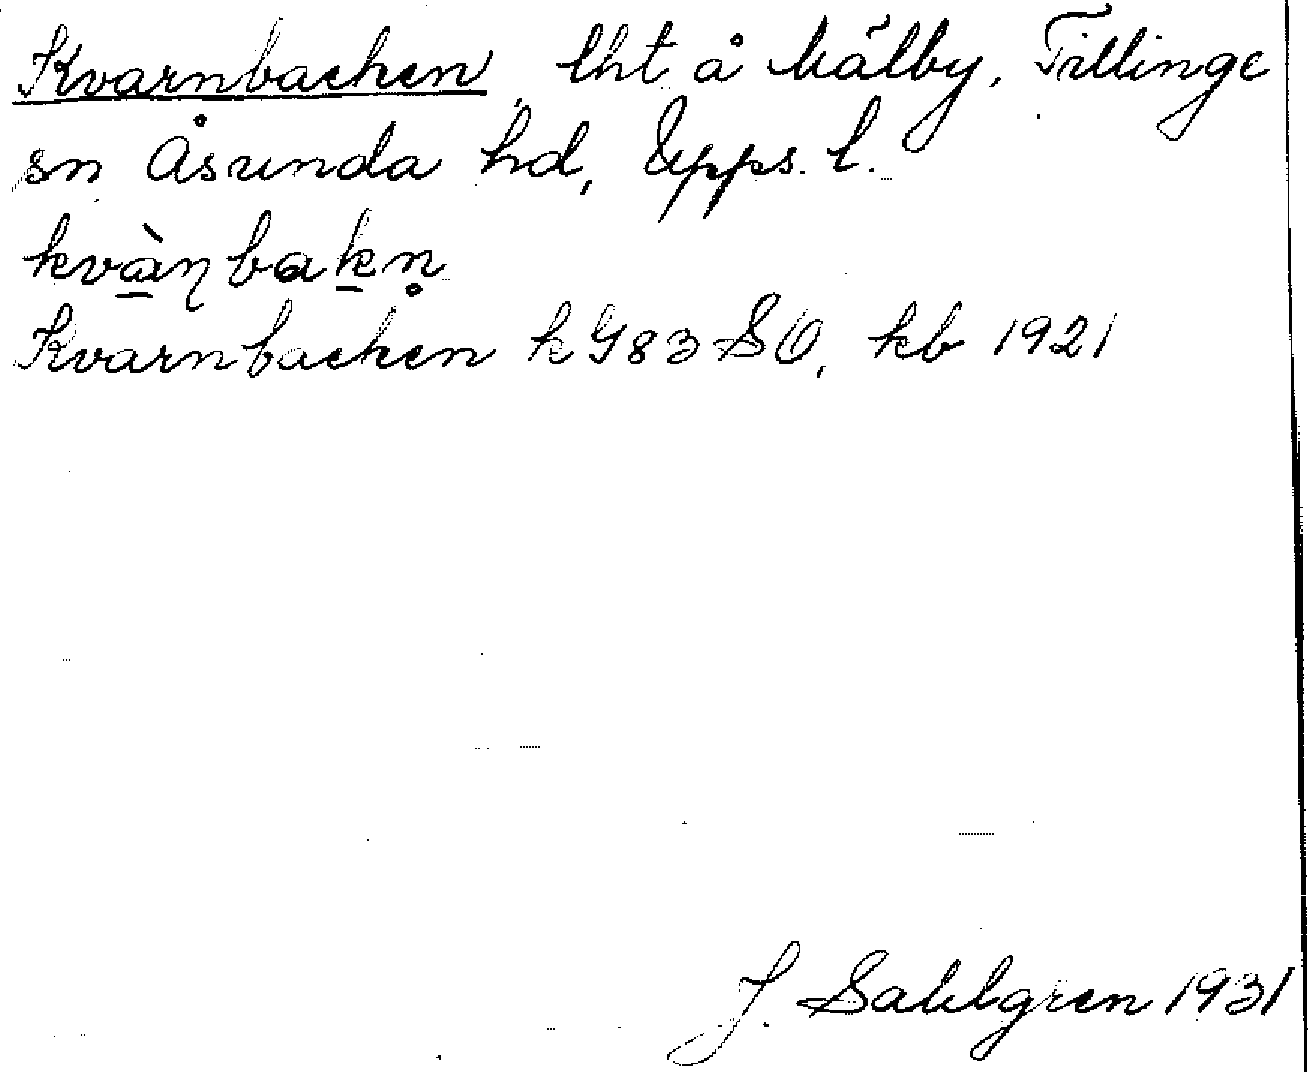 Kvarnbacken, lht å Målby, Tillinge
sn Åsunda hd, Upps. l.
kvàɳbakn̥
Kvarnbacken k G83 SO, kb 1921
J. Sahlgren 1931